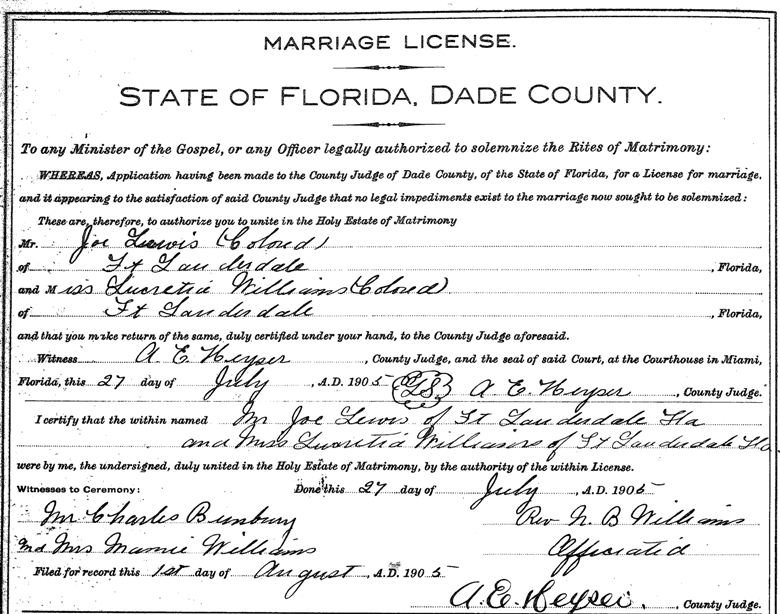 MARRIAGE LICENSE.
STATE OF FLORIDA, DADE COUNTY.
To any Minister of the Gospel, or any Officer legally authorized to solemnize the Rites of Matrimony:
WHEREAS, Application having been made to the County Judge of Dade County, of the State of Florida, for a License for marriage,
and it appearing to the satisfaction of said County Judge that no legal impediments exist to the marriage now sought to be solemnized:
These are, therefore, to authorize you to unite in the Holy Estate of Matrimony
Mr. Joe Lewis (Colored)
of Ft Lauderdale, Florida,
and Miss Lucretia Williams (Colored)
of Ft Lauderdale, Florida,
and that you make return of the same, duly certified under your hand, to the County Judge aforesaid.
Witness A E Heyser, County Judge, and the seal of said Court, at the Courthouse in Miami,
Florida, this 27 day of July, A.D. 1905 (LS) A E Heyser, County Judge.
I certify that the within named Mr Joe Lewis of Ft Lauderdale Fla
and Miss Lucretia Williams of Ft Lauderdale Fla
were by me, the undersigned, duly united in the Holy Estate of Matrimony, by the authority of the within License.
Witnesses to Ceremony: Done this 27 day of July, A.D. 1905
Mr Charles Bunbury Rev N. B Williams
and Mrs Mamie Williams Officiated
Filed for record this 1st day of August, A.D. 1905
A. E. Heyser, County Judge.